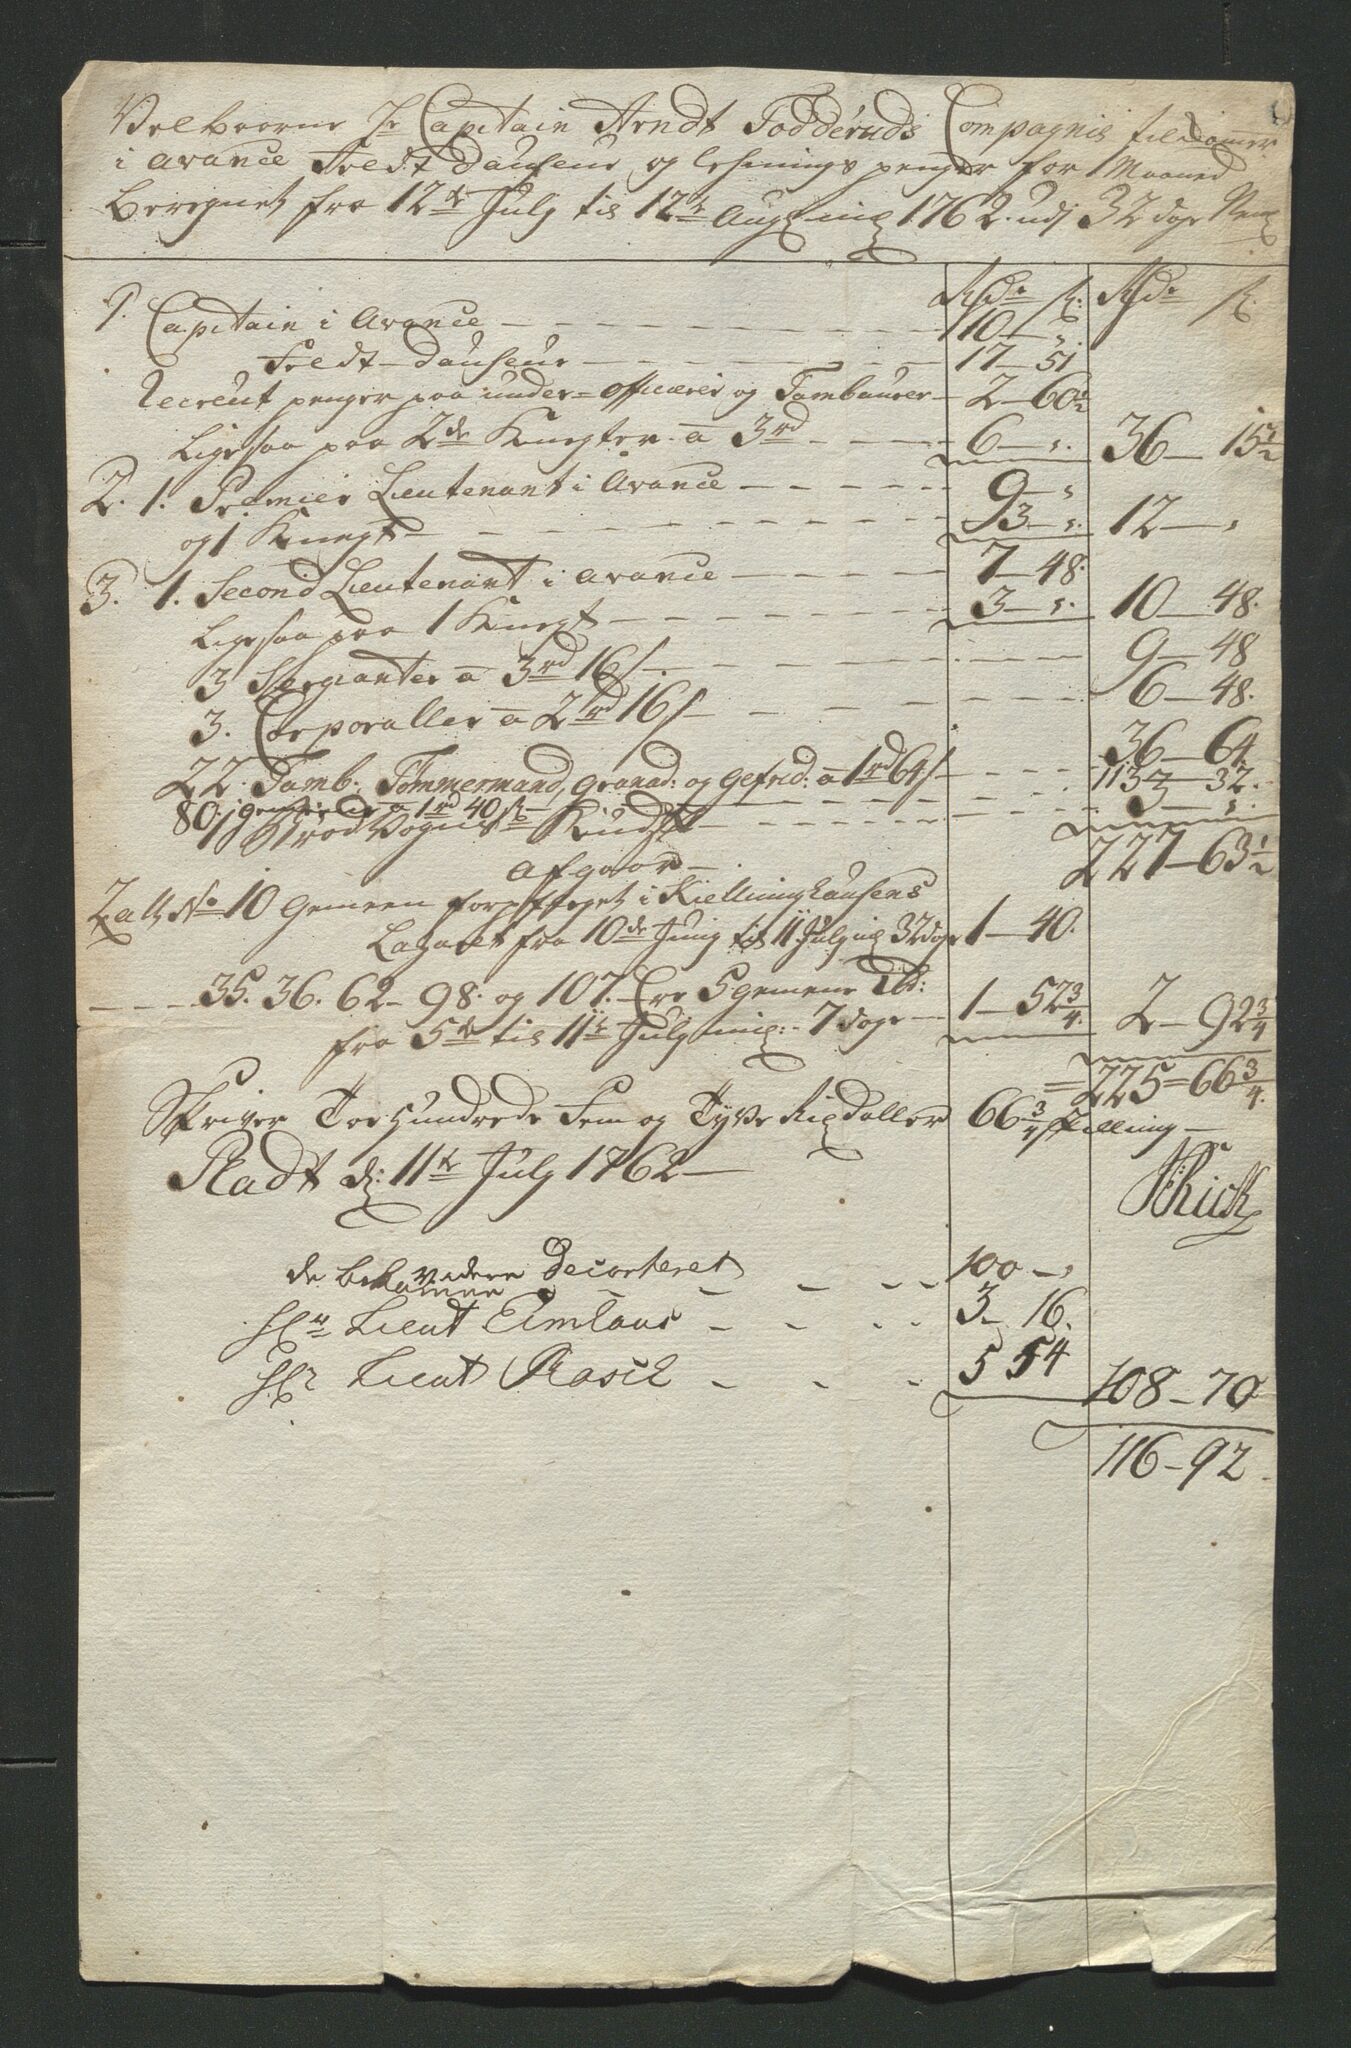 Velbaarne Hr Capitain Arndt Födderuds Compagnie tilkommer
i avance Feldt douseur og lehnings penger for 1 Maaned
Beregnet fra 12te July til 12te Aug 1762. udj 32 dage
Rdr ß: Rdr ß
1. Capitain i Avance — 10 — "
Feldt-douseur — 17 — 51
Recrut penger paa under=officerer og Tambourer — 2 — 60 1/2
Ligesaa paa 2de Knegter a 3rd — 6 — ". 36 — 15 1/2
2. 1. Premier Lieutenant i Avance — 9 — "
og 1 Knegt — 3 — ". 12 — "
3. 1. Second Lieutenant i avance — 7 — 48.
Ligesaa paa 1 Knegt — 3 — ". 10 — 48.
3 Sergianter a 3rd 16/ — 9 — 48
3. Corporaller a 2rd 16/ — 6 — 48.
22. Tamb: Tømmermand, granad: og gefrid: a 1rd 64/ — 36 — 64
80. gemeener a 1rd 40ß — 113 — 32.
1 Knudsen — 3 — ".
227 — 63 1/2
afgaar —
No 10 gemeen forpfleget i Kiellinghausens
Lazaret fra 10de Juny til 11 July 32 dage 1 — 40.
35. 36. 62 — 98. og 107. Ere 5 gemene
fra 5te til 11te July 7 dage — 1 — 52 3/4. 2 — 92 3/4
= 225 = 66 3/4.
Skriver Toe Hundrede Fem og Tyve Rixdaller 66 3/4 skilling —
Pladt d: 11te July 1762 —
Schick
de bekommene Decorteret — 100 — "
Hr Lieut Emhaus — 3 — 16.
Hr Lieut Rasch — 5 54
108 — 70
116 — 92